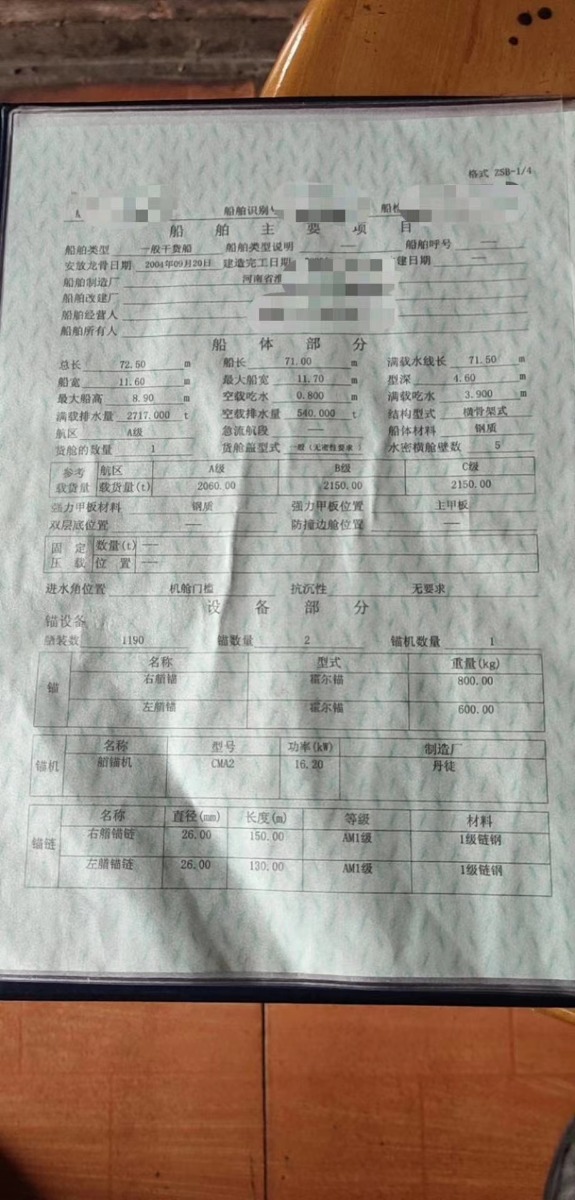 格式 ZSB-1/4
船舶识别 船检
船舶主要项目
船舶类型 一般干货船 船舶类型说明 — 船舶呼号 —
安放龙骨日期 2004年09月20日 建造完工日期 建日期 —
船舶制造厂 河南省淮
船舶改建厂
船舶经营人
船舶所有人
船体部分
总长 72.50 m 船长 71.00 m 满载水线长 71.50 m
船宽 11.60 m 最大船宽 11.70 m 型深 4.60 m
最大船高 8.90 m 空载吃水 0.800 m 满载吃水 3.900 m
满载排水量 2717.000 t 空载排水量 540.000 t 结构型式 横骨架式
航区 A级 急流航段 — 船体材料 钢质
货舱的数量 1 货舱盖型式 一般（无密性要求） 水密横舱壁数 5
参考 航区 A级 B级 C级
载货量 载货量(t) 2060.00 2150.00 2150.00
强力甲板材料 钢质 强力甲板位置 主甲板
双层底位置 — 防撞边舱位置 —
固定 数量(t) —
压载 位置 —
进水角位置 机舱门槛 抗沉性 无要求
设备部分
锚设备
舾装数 1190 锚数量 2 锚机数量 1
名称 型式 重量(kg)
锚 右艏锚 霍尔锚 800.00
左艏锚 霍尔锚 600.00
名称 型号 功率(kW) 制造厂
锚机 艏锚机 CMA2 16.20 丹徒
名称 直径(mm) 长度(m) 等级 材料
锚链 右艏锚链 26.00 150.00 AM1级 1级链钢
左艏锚链 26.00 130.00 AM1级 1级链钢